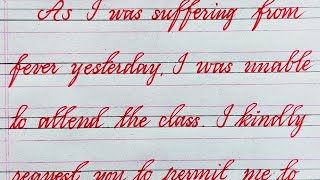 As I was suffering from
fever yesterday, I was unable
to attend the class. I kindly
request you to permit me to